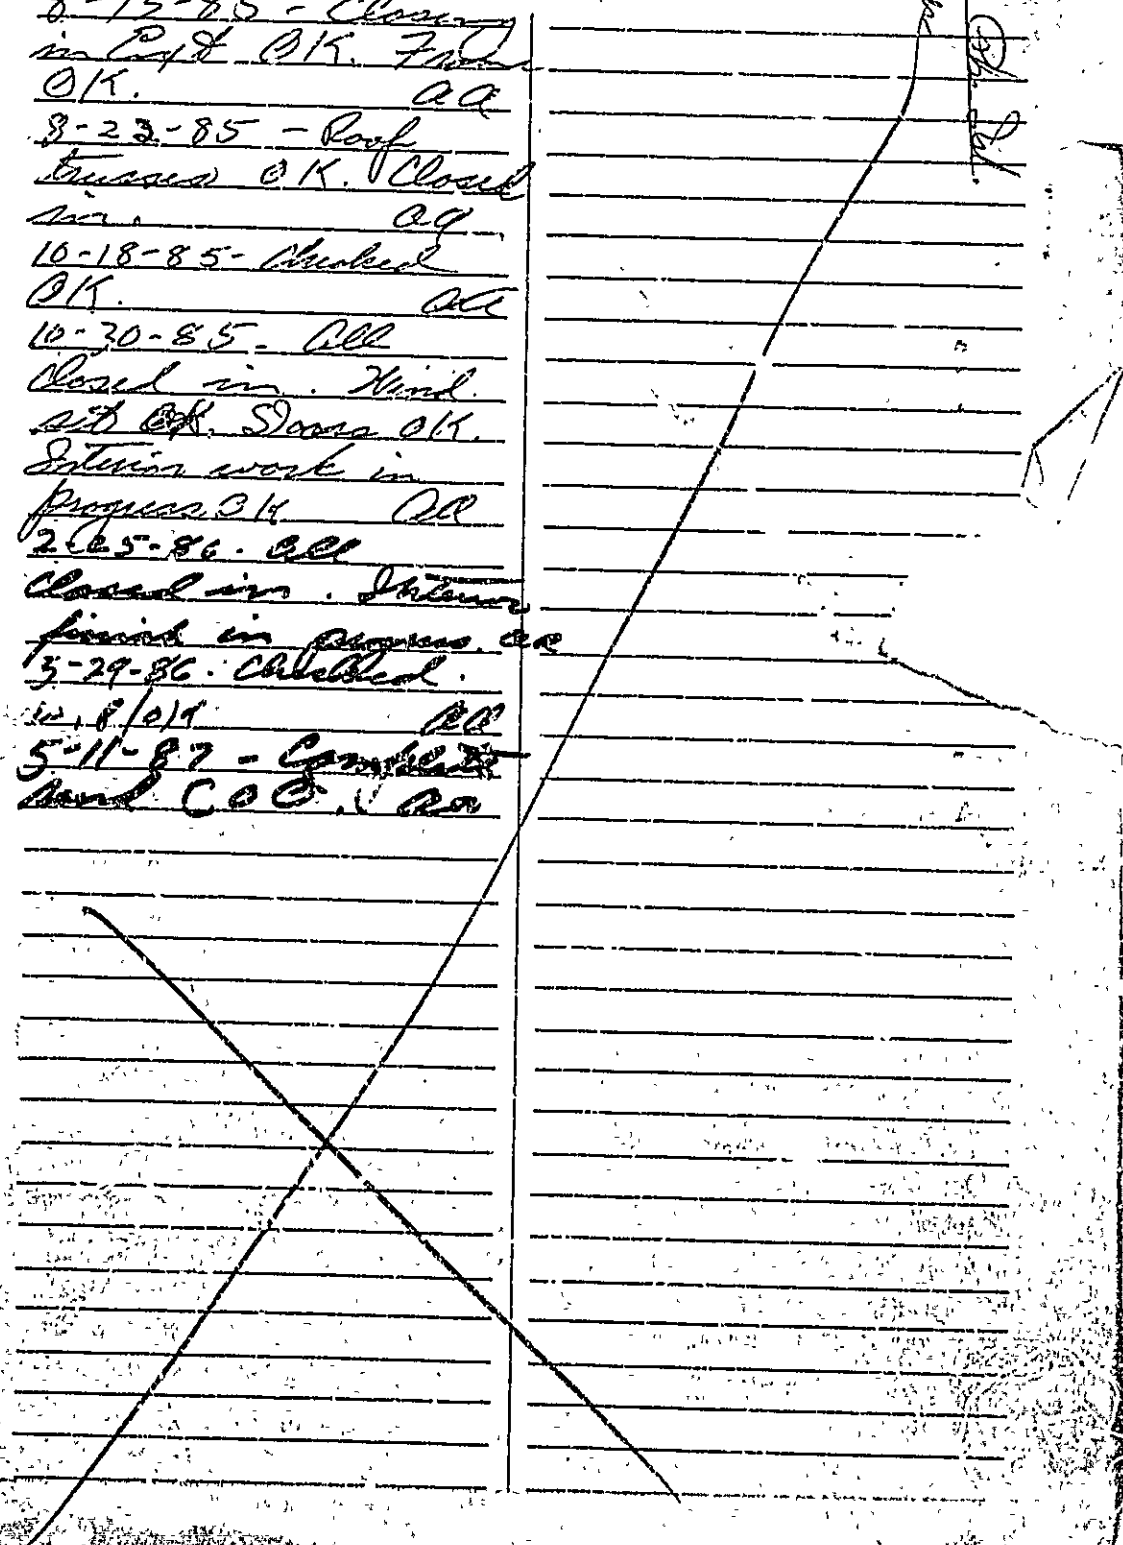 8-15-85 - Closing
in OK. Frame
OK. AA
8-23-85 - Roof
trusses OK. Closed
in. AA
10-18-85 - Checked
OK. AA
10-30-85 - All
closed in. Wind.
set OK. Doors OK.
Interior work in
progress OK AA
2-25-86. All
closed in. Interior
finish in progress. AA
3-29-86. Checked.
AA
5-11-87 - Complete
send COO. AA